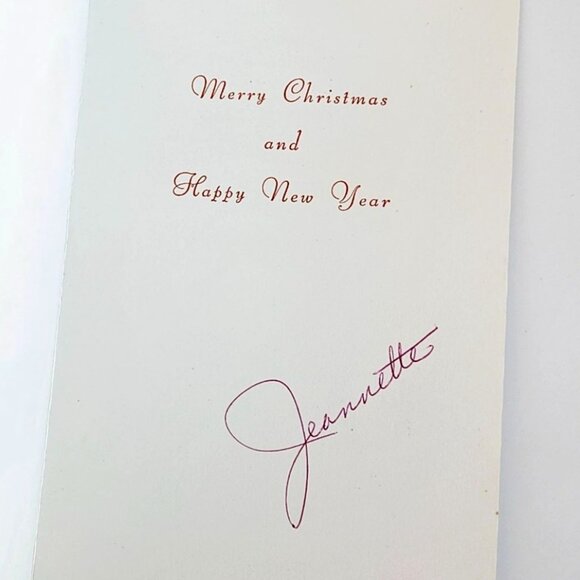 Merry Christmas
and
Happy New Year
Jeannette